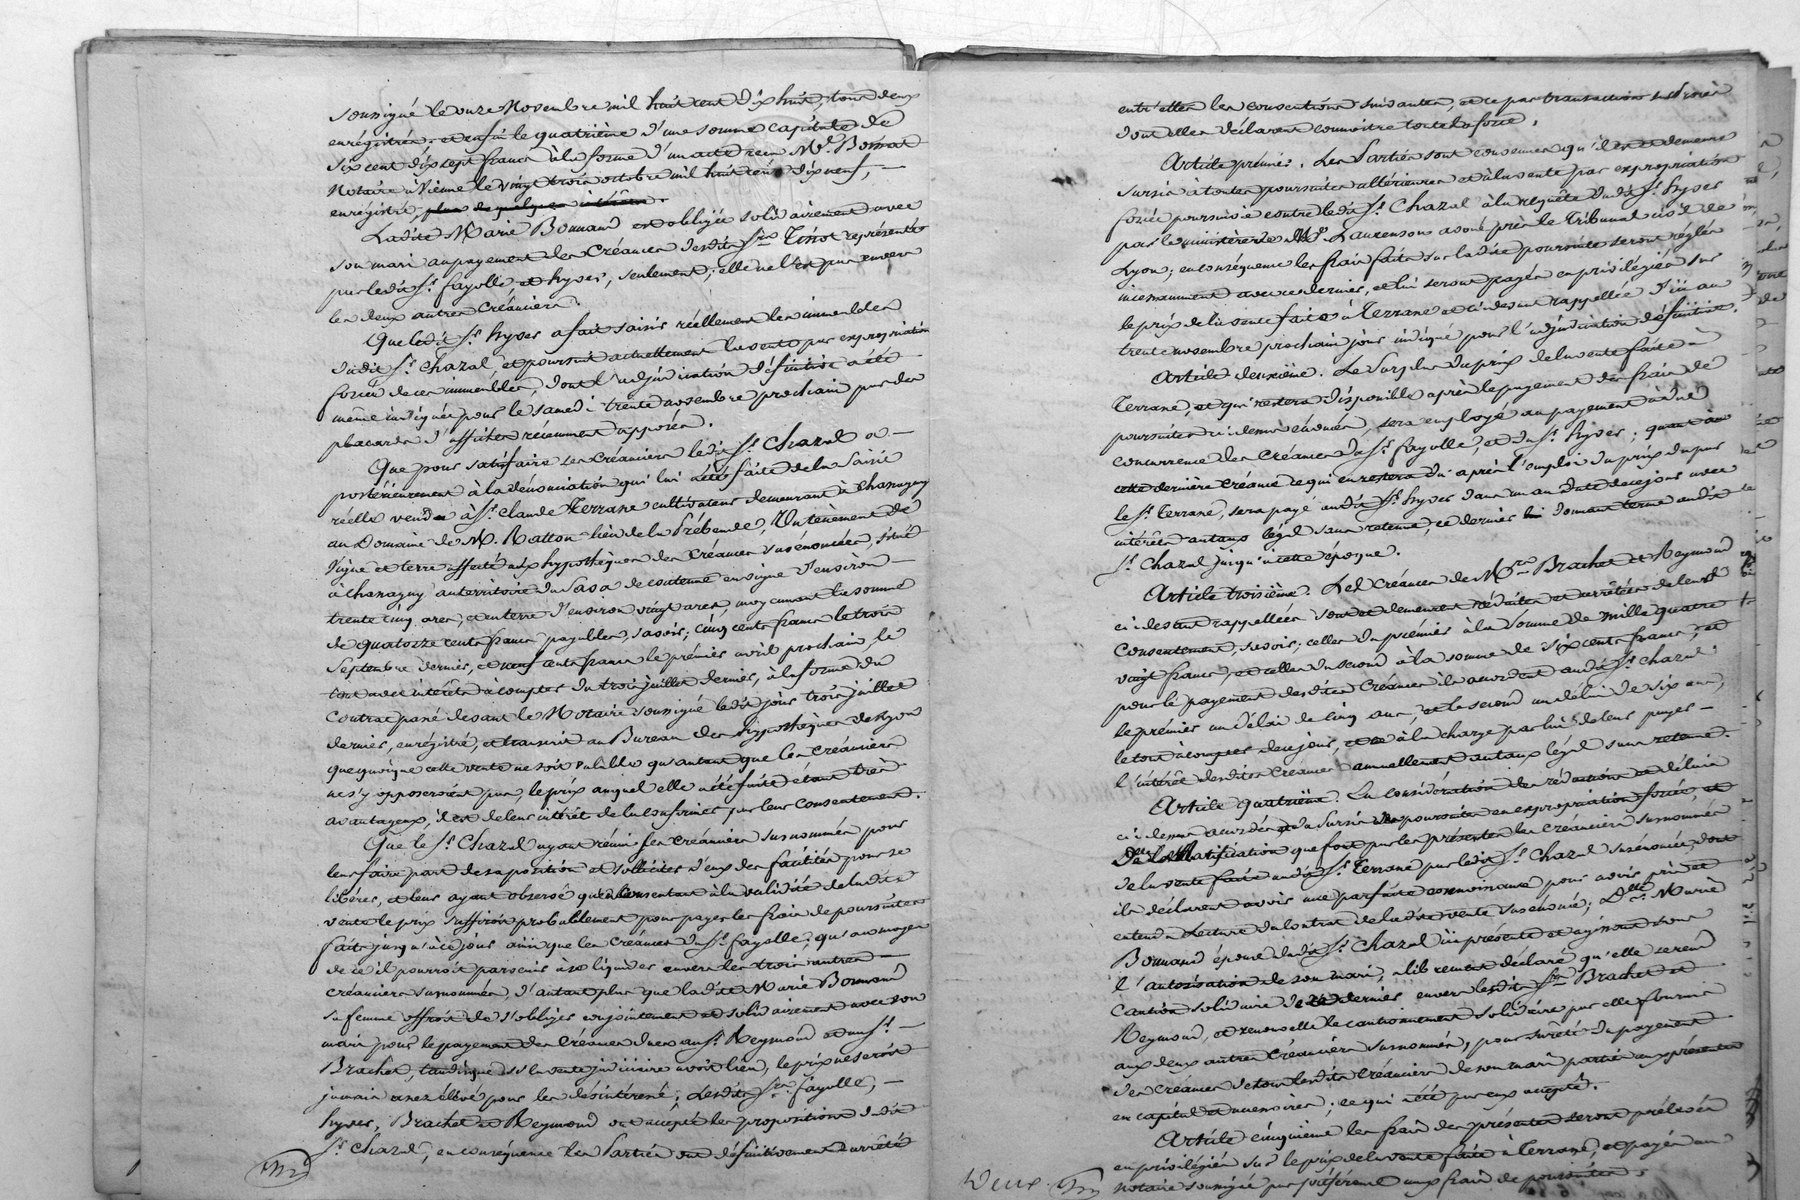 soussigné le onze Novembre mil huit cent dix huit, tous deux
enrégistrés; et enfin le quatrième d'une somme capitale de
six cent dix sept francs à la forme d'un acte reçu Mr. Boissat
Notaire à Vienne le vingt trois octobre mil huit cent dix neuf, —
enrégistré,
Ladite Marie Bonnand est obligée solidairement avec
son mari au payement des Créances desdits Srs Tinot représentés
par ledit Sr. fayolle, et hyver, seulement; elle ne l'est pas envers
les deux autres Créanciers.
Que ledit Sr. hyver a fait saisir réellement les immeubles
dudit Sr. Chazal, et poursuit actuellement la vente par expropriation
forcée de ces immeubles, dont l'adjudication définitive a été
même indiquée pour le samedi trente novembre prochain par des
placards d'affiches récemment apposés.
Que pour satisfaire ses Créanciers ledit Sr. Chazal a —
postérieurement à la dénonciation qui lui a été faite de la Saisie
réelle vendu à Sr. Claude Terrane cultivateur demeurant à Chanagny
au Domaine de M. Ratton lieu de la Prébende, Un tènement de
Vigne et terre affecté aux hypothèques des Créances susénoncées, situé
à Chanagny au territoire du de contenue en vigne d'environ —
trente cinq ares, et en terre d'environ vingt ares, moyennant la somme
de quatorze cents francs payables, savoir; cinq cents francs le trois
Septembre dernier, et neuf cents francs le prémier avril prochain le
tout avec intérêts à compter du trois juillet dernier, à la forme du
Contrat passé devant le Notaire soussigné ledit jour trois juillet
dernier, enrégistré, et transcrit au Bureau des hypothèques de Lyon
que quoique cette vente ne soit valable qu'autant que les créanciers
ne s'y opposeroient pas, le prix auquel elle a été faite étant très
avantageux, il est de leur intérêt de la confirmer par leur consentement.
Que le Sr. Chazal ayant réuni ses créanciers susnommés pour
leur faire part de sa position et solliciter d'eux des facilités pour se
libérer, et leur ayant observé qu'en consentant à la validité de ladite
vente le prix suffiroit probablement pour payer les frais de poursuites
faits jusqu'à ce jour ainsi que les créances du Sr. fayolle; qu'au moyen
de ce il pourroit parvenir à se liquider envers les trois autres —
créanciers susnommés, d'autant plus que ladite Marie Bonnand
sa femme offroit de s'obliger conjointement et solidairement avec son
mari pour le payement des Créances dues au Sr. Reymond et au Sr. —
Brachet, tandisque si la vente judiciaire avoit lieu, le prix ne seroit
jamais assez élevé pour les désintéressé; Lesdits Srs. fayolle, —
hyver, Brachet et Reymond ont accepté les propositions dudit
Sr. Chazal, en conséquence les Parties ont définitivement arrêté
entr'elles les conventions suivantes, et ce par transaction sur procès
dont elles déclarent connoitre toute la force.
Article prémier. Les Parties sont convenues qu'il est et demeure
sursis à toutes poursuites ultérieures et à la vente par expropriation
forcée poursuivie contre ledit Sr. Chazal à la requête dudit Sr. hyver
par le ministère de Me. Laurenson avoué près le Tribunal civil de
Lyon; en conséquence les frais faits sur ladite poursuite seront réglés
incessamment avec ce dernier, et lui seront payés en privilégiés sur
le prix de la vente faite à Terrane et ci devant rappellée d'ici au
trente novembre prochain jour indiqué pour l'adjudication définitive.
Article deuxième. Le Surplus du prix de la vente faite à
Terrane, et qui restera disponible après le payement des frais de
poursuites ci dessus énoncés, sera employé au payement à due
concurrence des Créances du Sr. fayolle, et du Sr. hyver; quant à
cette dernière créance ce qui en restera dû après l'emploi du prix dû par
le Sr. Terrane, sera payé audit Sr. hyver dans un an à date de ce jour avec
intérêts au taux légal sans retenue, ce dernier donnant terme audit
Sr. Chazal jusqu'à cette époque.
Article troisième. Les Créances de Mrs. Brachet et Reymond
ci devant rappellées sont et demeurent réduites et arrêtées de leur
consentement, savoir; celles du prémier à la somme de mille quatre
vingt francs, et celles du second à la somme de six cents francs; et
pour le payement desdites Créances ils accordent audit Sr. Chazal:
le prémier un délai de cinq ans, et le second un délai de six ans,
le tout à compter de ce jour, et à la charge par lui de leur payer —
l'intérêt desdites créances annuellement au taux légal sans retenue.
Article quatrième. En considération des réductions et délais
ci dessus accordés et du sursis aux poursuites en expropriation forcée, et
de la Ratification que font par les présentes les créanciers susnommés
de la vente faite audit Sr. Terrane par ledit Sr. Chazal susénoncée, dont
ils déclarent avoir une parfaite connoissance pour avoir pris et
entendu lecture du Contrat de ladite vente susénoncée; Dlle. Marie
Bonnand épouse dudit Sr. Chazal ici présente et agissant sous
l'autorisation de son mari, a librement déclaré qu'elle se rend
Caution solidaire de ce dernier envers lesdits Srs Brachet et
Reymond, et renouvelle le cautionnement solidaire par elle fourni
aux deux autres Créanciers susnommés, pour sureté du payement
des créances de tous lesdits Créanciers de son mari parties aux présentes
en capital et accessoires; ce qui a été par eux accepté.
Article cinquième les frais des présentes seront prélevés
en privilégiés sur le prix de la vente faite à Terrane, et payés au
notaire soussigné par préférence aux frais de poursuites.
Deux.